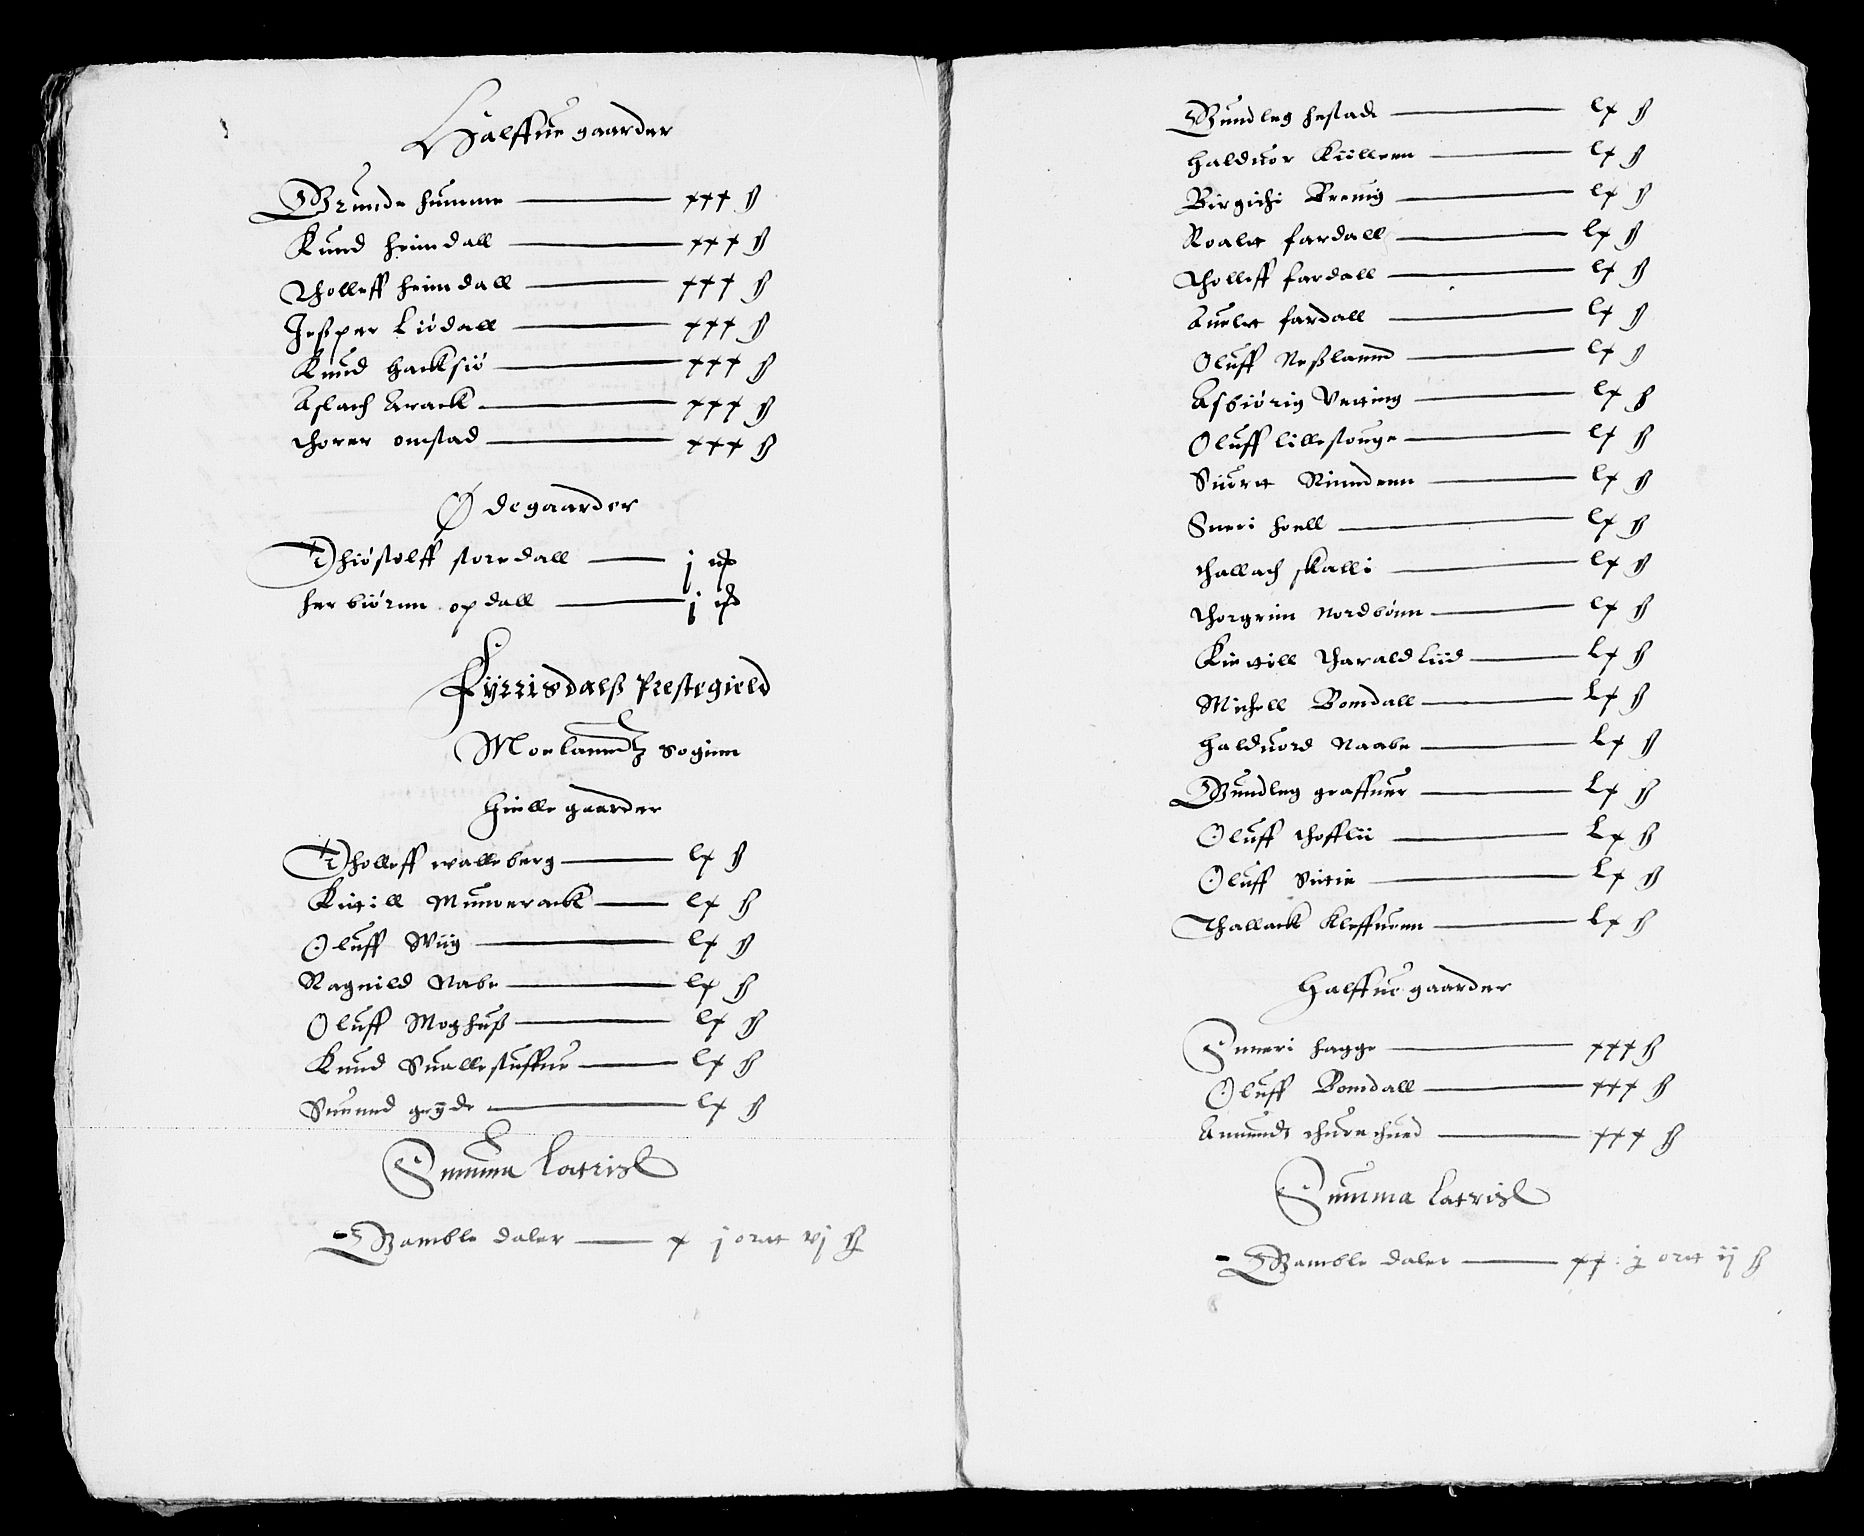 Halffue gaarder
Gunde humme — xxx ß
Knud heimdall — xxx ß
Tholleff heimdall — xxx ß
Jesper Liødall — xxx ß
Knud hacksiø — xxx ß
Aslach Arack — xxx ß
Thorer omstad — xxx ß
Ødegaarder
Thiøstolff storedall — j ort
herbiørnn opdall — j ort
Fyrrisdalß Prestegield
Moelanndtz Soginn
Hielle gaarder
Tholleff walleberg — lx ß
Kittill Munderack — lx ß
Oluff Wiig — lx ß
Ragnild Nabe — lx ß
Oluff Moghuß — lx ß
Knud Suallestuffue — lx ß
Suennd gryde — lx ß
Summa Lateris
Gamble daler — x j ortt vj ß
Gundleg hestad — lx ß
Halduor Kiilleen — lx ß
Birgithi Breuig — lx ß
Roalt fardall — lx ß
Tholleff fardall — lx ß
Auelt fardall — lx ß
Oluff Neßlannd — lx ß
Asbiørig Vetting — lx ß
Oluff lillestouge — lx ß
Siurtt Rinndenn — lx ß
Sneri hoell — lx ß
Thallach skalli — lx ß
Thorgrim Nordbønn — lx ß
Kietill Tharaldliid — Lx ß
Michell Bomdall — Lx ß
Halduord Naabe — Lx ß
Gundleg graffuer — Lx ß
Oluff Thofflii — Lx ß
Oluff Sittie — Lx ß
Thallack Kleffuenn — Lx ß
Halffue gaarder
Snneri hagge — xxx ß
Oluff Bomdall — xxx ß
Amundt — xxx ß
Summa Lateris
Gamble daler — xx. j ortt ij ß